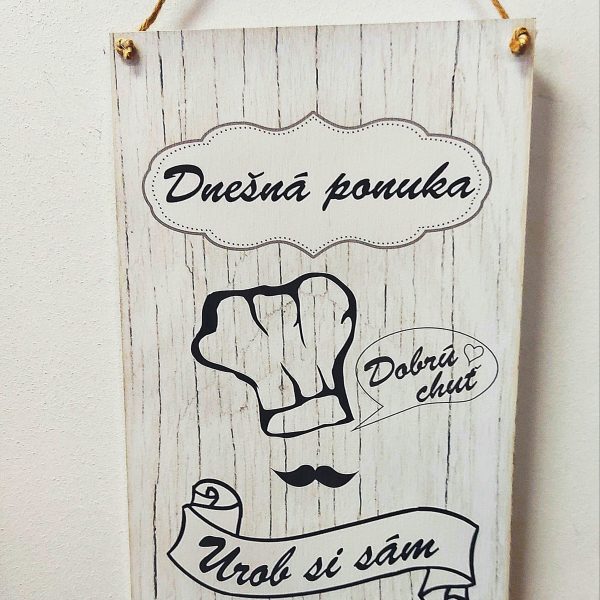 Dnešná ponuka
Dobrú
chuť
Urob si sám